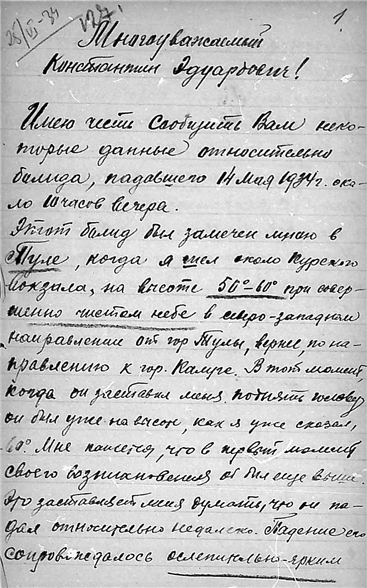 28/VI-34
127.
1
Многоуважаемый
Константин Эдуардович!
Имею честь сообщить Вам неко-
торые данные относительно
болида, падавшего 14 мая 1934 г. око-
ло 10 часов вечера.
Этот болид был замечен мною в
Туле, когда я шел около Курского
вокзала, на высоте 50°-60° при совер-
шенно чистом небе в северо-западном
направлении от гор Тулы, вернее, по на-
правлению к гор. Калуге. В тот момент,
когда он заставил меня поднять голову
он был уже на высоте, как я уже сказал,
60°. Мне кажется, что в первый момент
своего возникновения он был еще выше.
Это заставляет меня думать, что он па-
дал относительно недалеко. Падение его
сопровождалось ослепительно-ярким